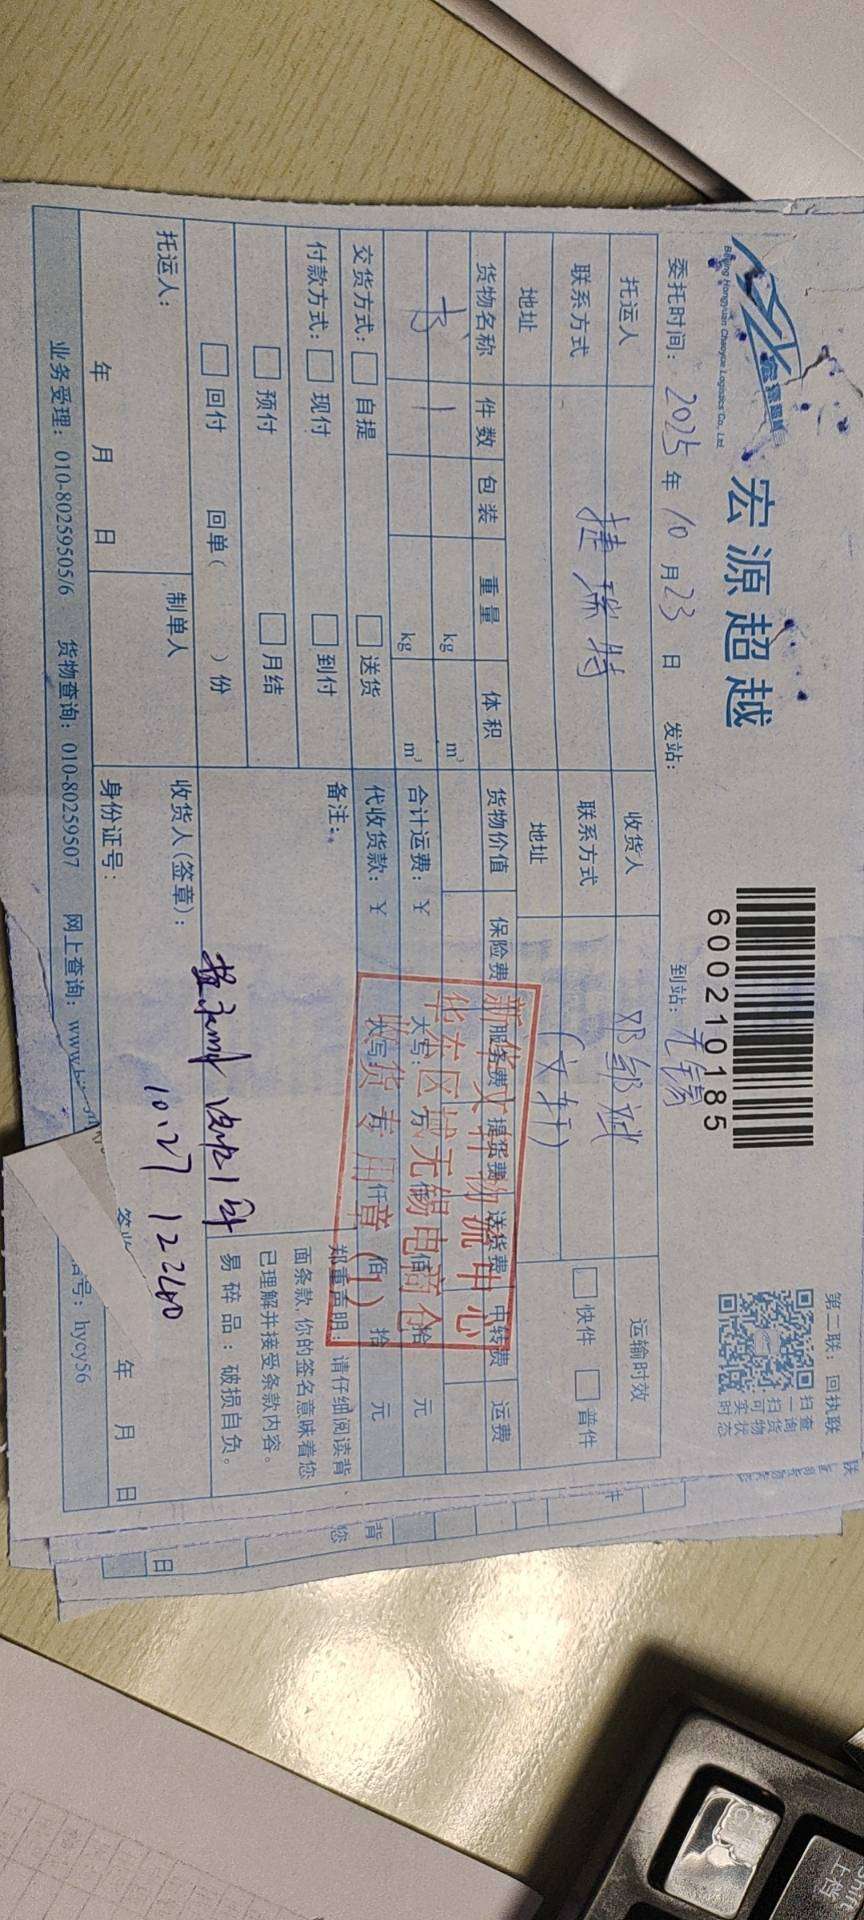 宏源超越
Beijing Hongyuan Chaoyue Logistics Co., Ltd.
宏源超越
60021 0185
第二联：回执联
扫一扫可实时
查询货物状态
委托时间：2025年10月23日 发站： 到站：无锡
托运人 捷瑞特 收货人 邓 运输时效
联系方式 联系方式 (文轩) 快件 普件
地址 地址
货物名称 件数 包装 重量 体积 货物价值 保险费 服务费 提货费 送货费 中转费 运费
书 1 kg m³
kg m³ 合计运费：¥ 大写： 万 仟 佰 拾 元
交货方式： 自提 送货 代收货款：¥ 大写： 万 仟 佰 拾 元
付款方式： 现付 到付 备注：
预付 月结
回付 回单( )份
新华文轩物流中心
华东区域无锡电商仓
收货专用章(1)
郑重声明：请仔细阅读背
面条款,你的签名意味着您
已理解并接受条款内容。
易碎品：破损自负。
托运人： 制单人 收货人(签章)：
10.27
年 月 日 身份证号： 年 月 日
业务受理：010-80259505/6 货物查询：010-80259507 网上查询：www.h 号：hycy56
背
您
日
Shift
上档